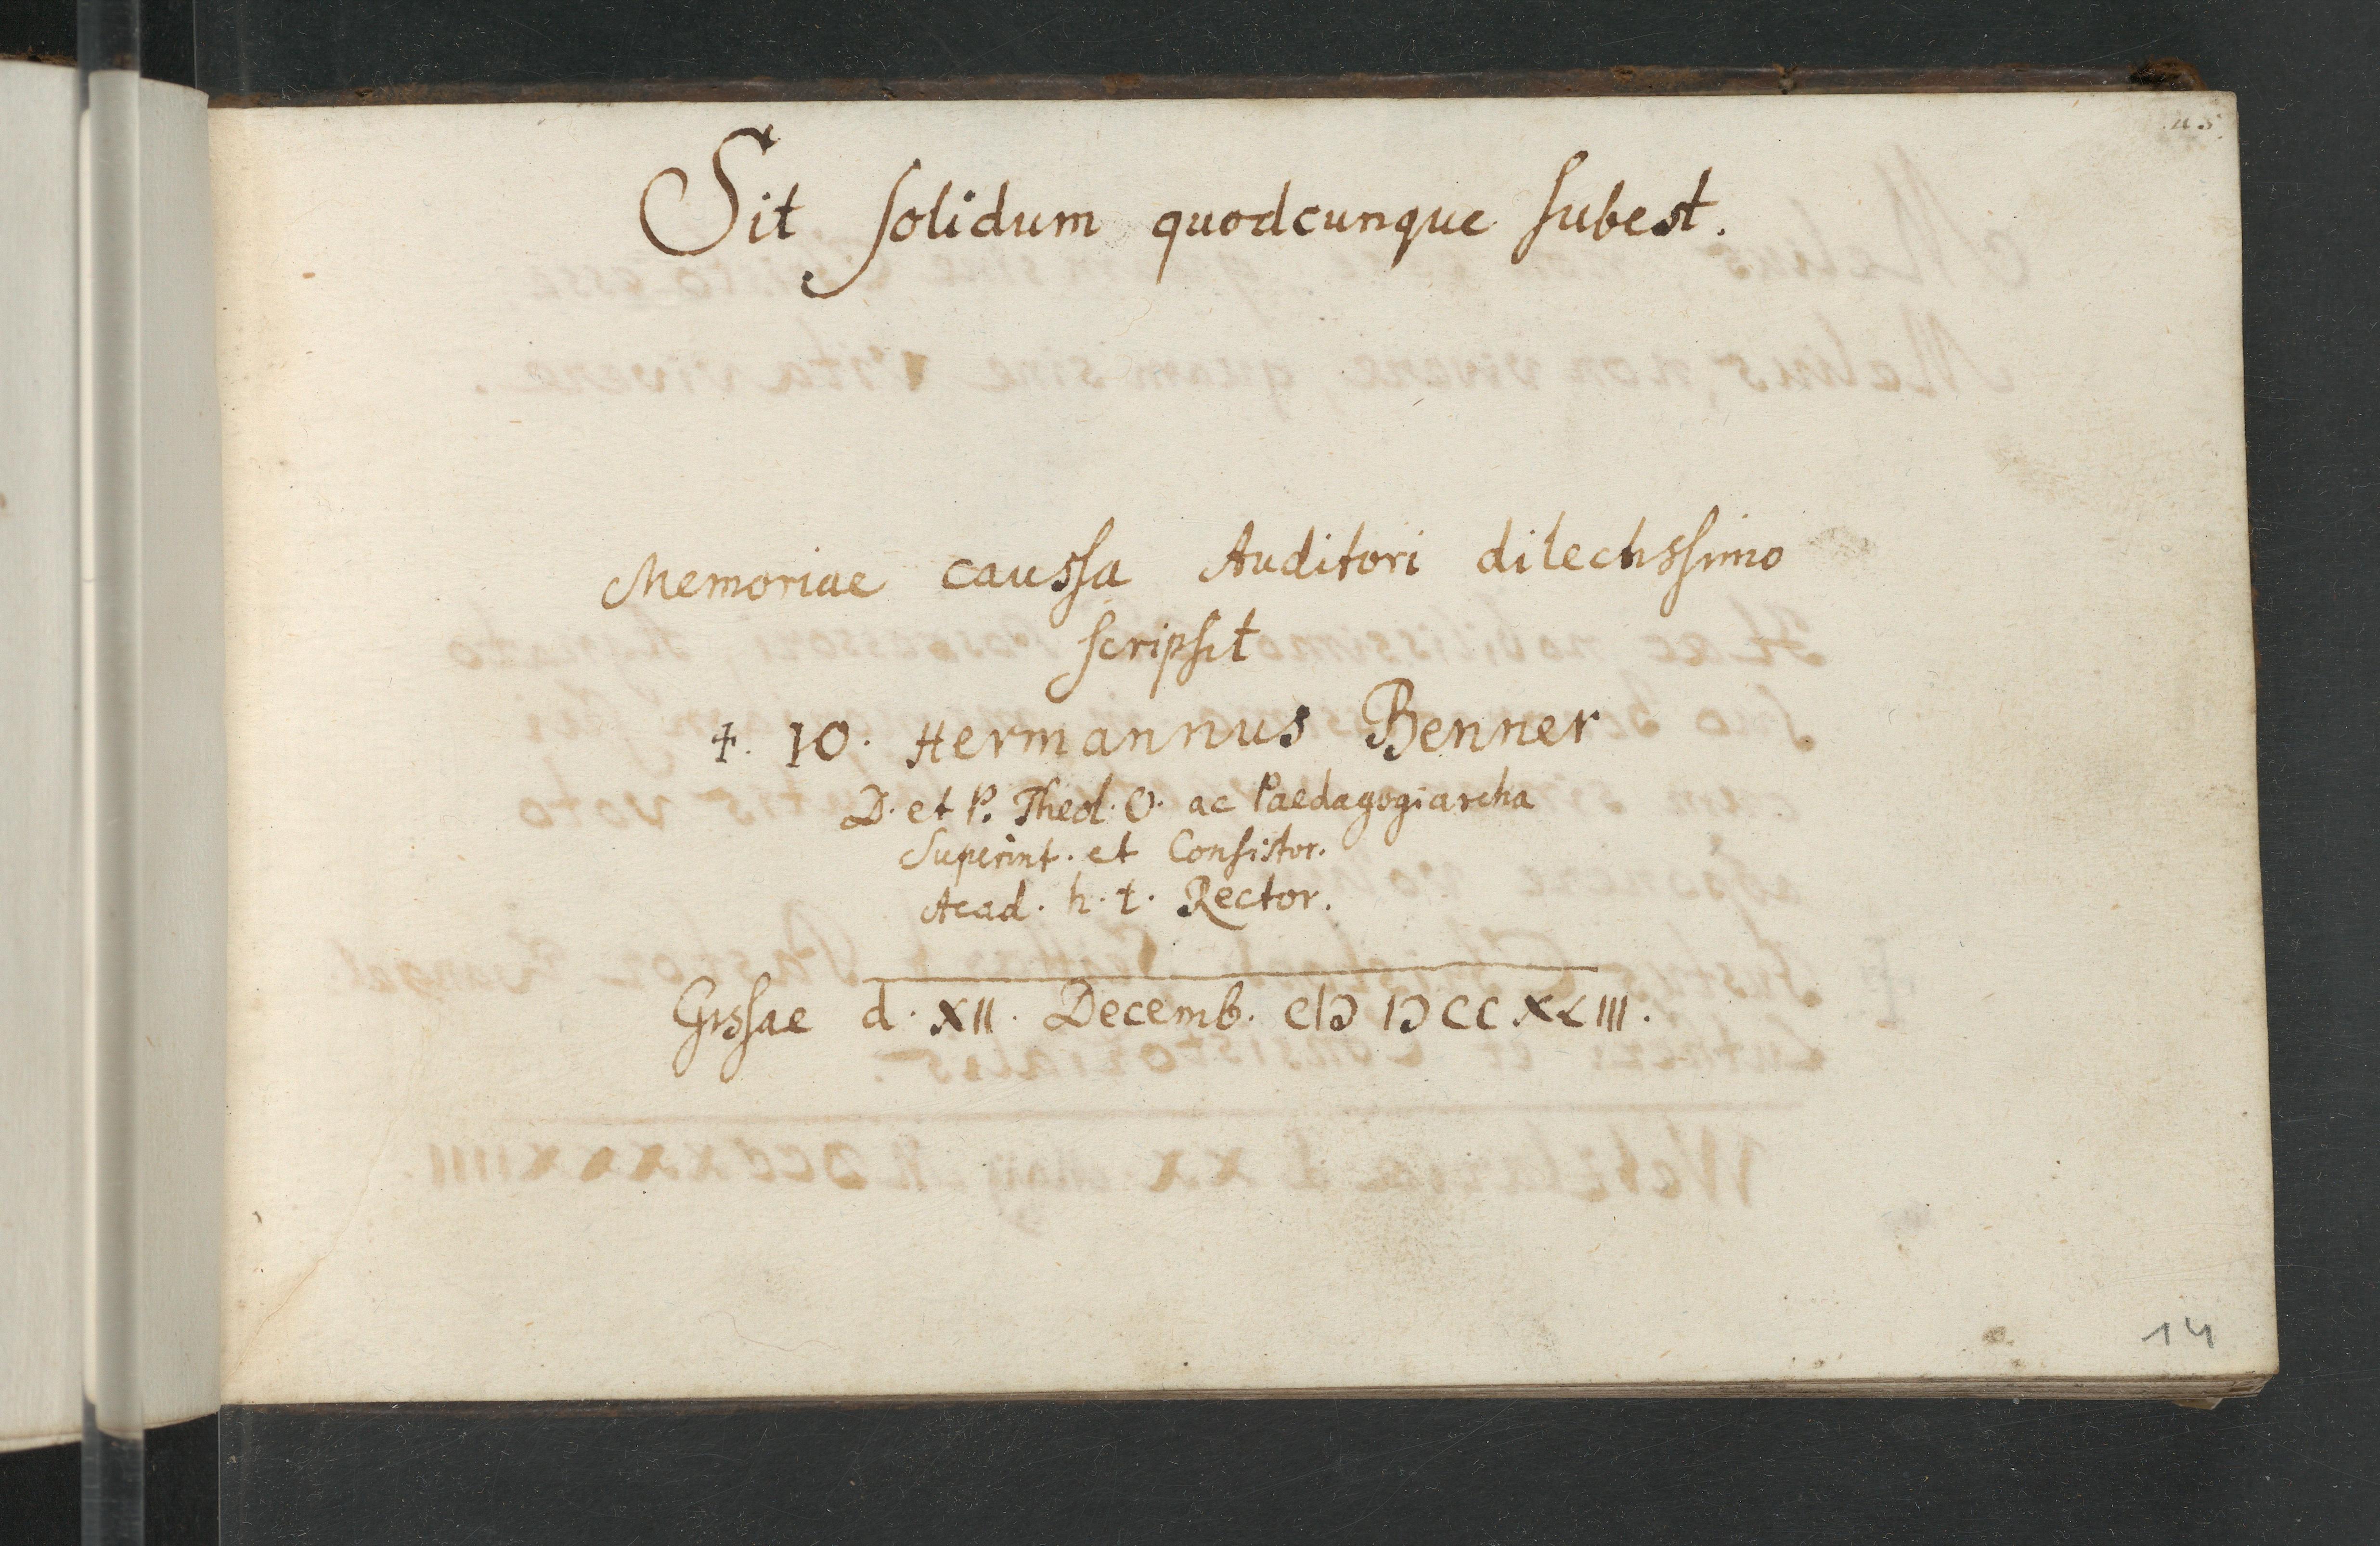 Sit solidum quodcunque subest.
Memoriae caussa Auditori dilectissimo
scripsit
†. IO. Hermannus Benner
D. et P. Theol. O. ac Paedagogiarcha
Superint. et Consistor.
Acad. h. t. Rector.
Gissae d. XII. Decemb. CIↃ IↃCC XLIII.
14